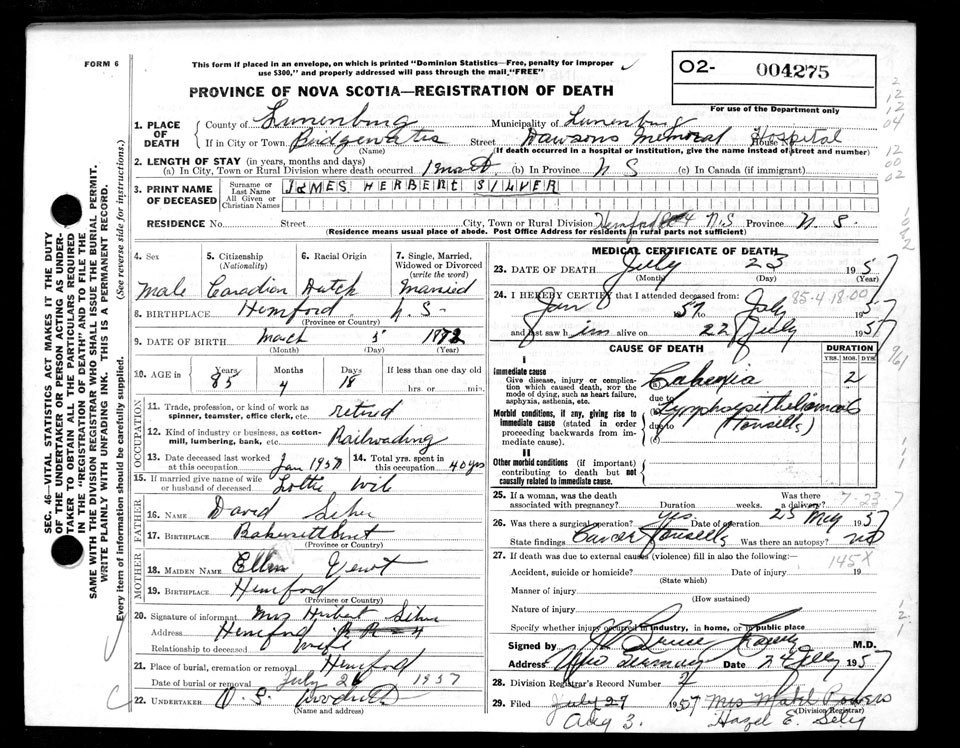 FORM 6
This form if placed in an envelope, on which is printed "Dominion Statistics—Free, penalty for improper
use $300," and properly addressed will pass through the mail "FREE"
O2- 004275
For use of the Department only
PROVINCE OF NOVA SCOTIA—REGISTRATION OF DEATH
1. PLACE OF DEATH
County of Lunenburg Municipality of Lunenburg
If in City or Town Bridgewater Street Dawsons Memorial Hospital House No.
(Name) (If death occurred in a hospital or institution, give the name instead of street and number)
2. LENGTH OF STAY (in years, months and days)
(a) In City, Town or Rural Division where death occurred 1 month (b) In Province N S (c) In Canada (if immigrant)
3. PRINT NAME OF DECEASED
Surname or Last Name JAMES HERBERT SILVER
All Given or Christian Names
RESIDENCE No. Street City, Town or Rural Division Hemford N.S Province N. S.
(Residence means usual place of abode. Post Office Address for residents in rural parts not sufficient)
4. Sex Male
5. Citizenship (Nationality) Canadian
6. Racial Origin Dutch
7. Single, Married, Widowed or Divorced (write the word) Married
8. BIRTHPLACE Hemford N. S.
(Province or Country)
9. DATE OF BIRTH March 5
(Month) (Day) (Year)
10. AGE in Years 85 Months 4 Days 18 If less than one day old hrs. or min.
OCCUPATION
11. Trade, profession, or kind of work as spinner, teamster, office clerk, etc. retired
12. Kind of industry or business, as cotton-mill, lumbering, bank, etc. Railroading
13. Date deceased last worked at this occupation Jan 1937
14. Total yrs. spent in this occupation 40 yrs
15. If married give name of wife or husband of deceased Lottie
FATHER
16. NAME David
17. BIRTHPLACE
(Province or Country)
MOTHER
18. MAIDEN NAME Ellen
19. BIRTHPLACE Hemford
(Province or Country)
20. Signature of informant Mrs Herbert
Address Hemford R R 4
Relationship to deceased wife
21. Place of burial, cremation or removal Hemford
Date of burial or removal July 26 1957
22. UNDERTAKER
(Name and address)
MEDICAL CERTIFICATE OF DEATH
23. DATE OF DEATH July 23 1957
(Month) (Day) (Year)
85-4-18-00
24. I HEREBY CERTIFY that I attended deceased from:
Jan 1957 to July 1957
and last saw him alive on 22 July 1957
CAUSE OF DEATH DURATION
YRS. MOS. DYS.
I
Immediate cause
Give disease, injury or complication which caused death, NOT the mode of dying, such as heart failure, asphyxia, asthenia, etc.
(a) Cahexia 2
due to
Morbid conditions, if any, giving rise to immediate cause (stated in order proceeding backwards from immediate cause).
(b) Lymphoepithelioma
due to (Tonsells)
(c)
II
Other morbid conditions (if important) contributing to death but not causally related to immediate cause.
25. If a woman, was the death associated with pregnancy? Duration weeks. Was there a delivery?
7-23-7
26. Was there a surgical operation? yes. Date of operation 25 1957
State findings Cancer Tonsells Was there an autopsy? no
27. If death was due to external causes (violence) fill in also the following:—
145X
Accident, suicide or homicide? Date of injury 19
(State which)
Manner of injury
(How sustained)
Nature of injury
Specify whether injury occurred in industry, in home, or in public place
Signed by Bruce M.D.
Address Date July 1957
28. Division Registrar's Record Number 7
29. Filed July 27 1957 Mrs Powers
(Division Registrar)
Aug 3. Hazel E. Selig
SEC. 46—VITAL STATISTICS ACT MAKES IT THE DUTY
OF THE UNDERTAKER OR PERSON ACTING AS UNDER-
TAKER TO OBTAIN ALL THE PARTICULARS REQUIRED
IN THE "REGISTRATION OF DEATH" AND TO FILE THE
SAME WITH THE DIVISION REGISTRAR WHO SHALL ISSUE THE BURIAL PERMIT.
WRITE PLAINLY WITH UNFADING INK. THIS IS A PERMANENT RECORD.
Every item of information should be carefully supplied. (See reverse side for instructions.)